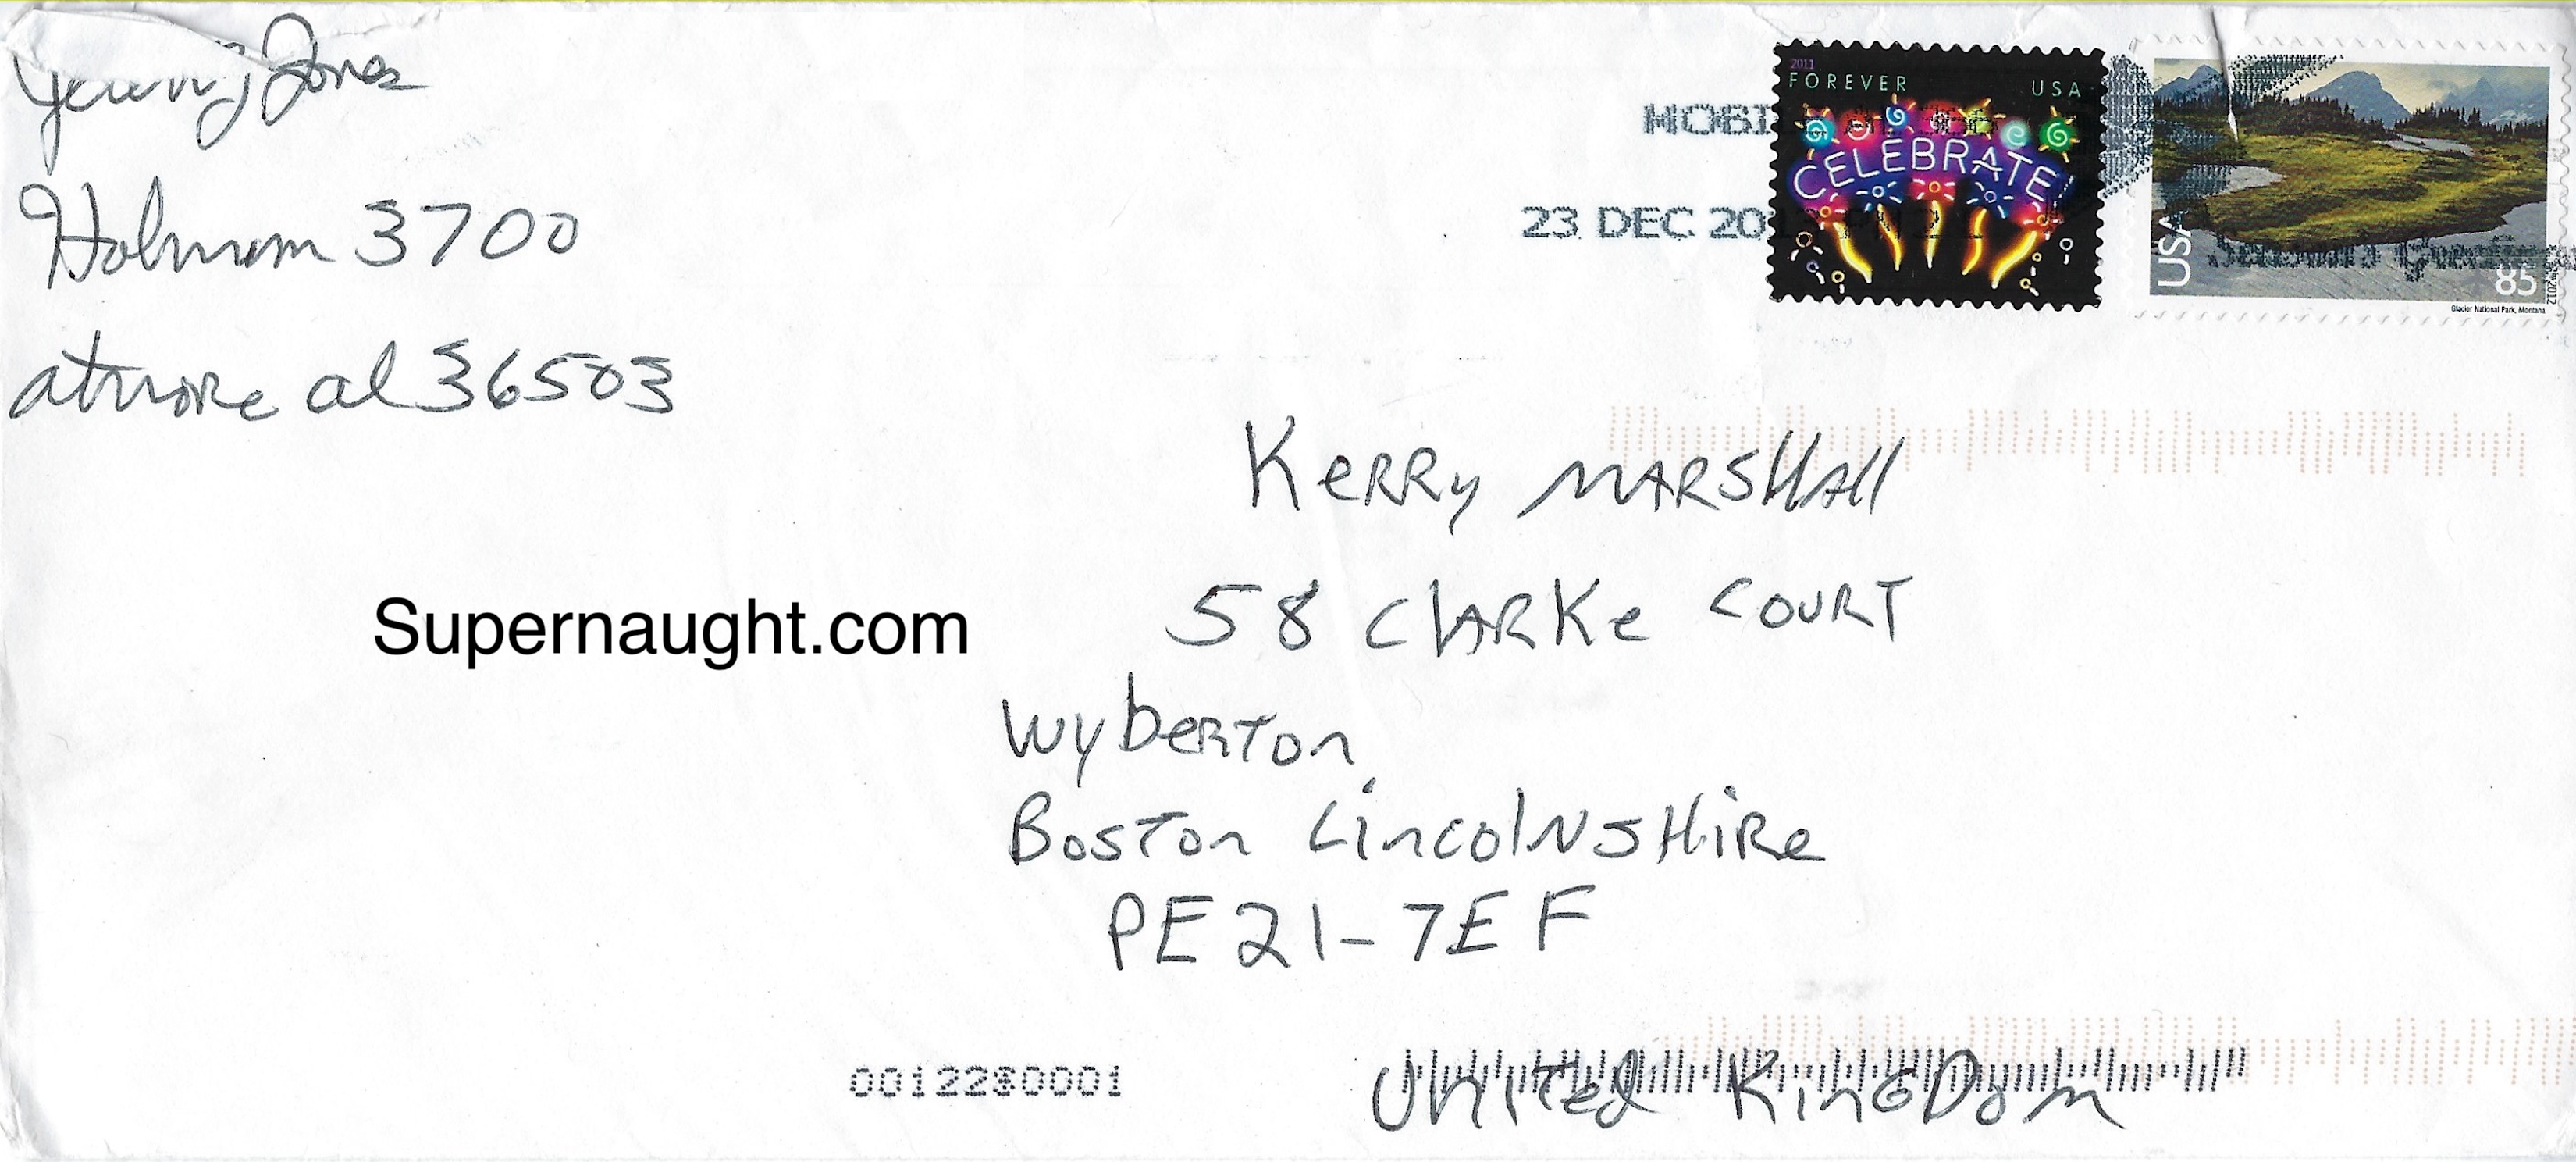 Jones
Holman 3700
atmore al 36503
23 DEC 20
2011
FOREVER USA
CELEBRATE
USA
85
2012
Glacier National Park, Montana
Kerry Marshall
58 Clarke Court
Wyberton
Boston Lincolnshire
PE21-7EF
United Kingdom
Supernaught.com
0012280001